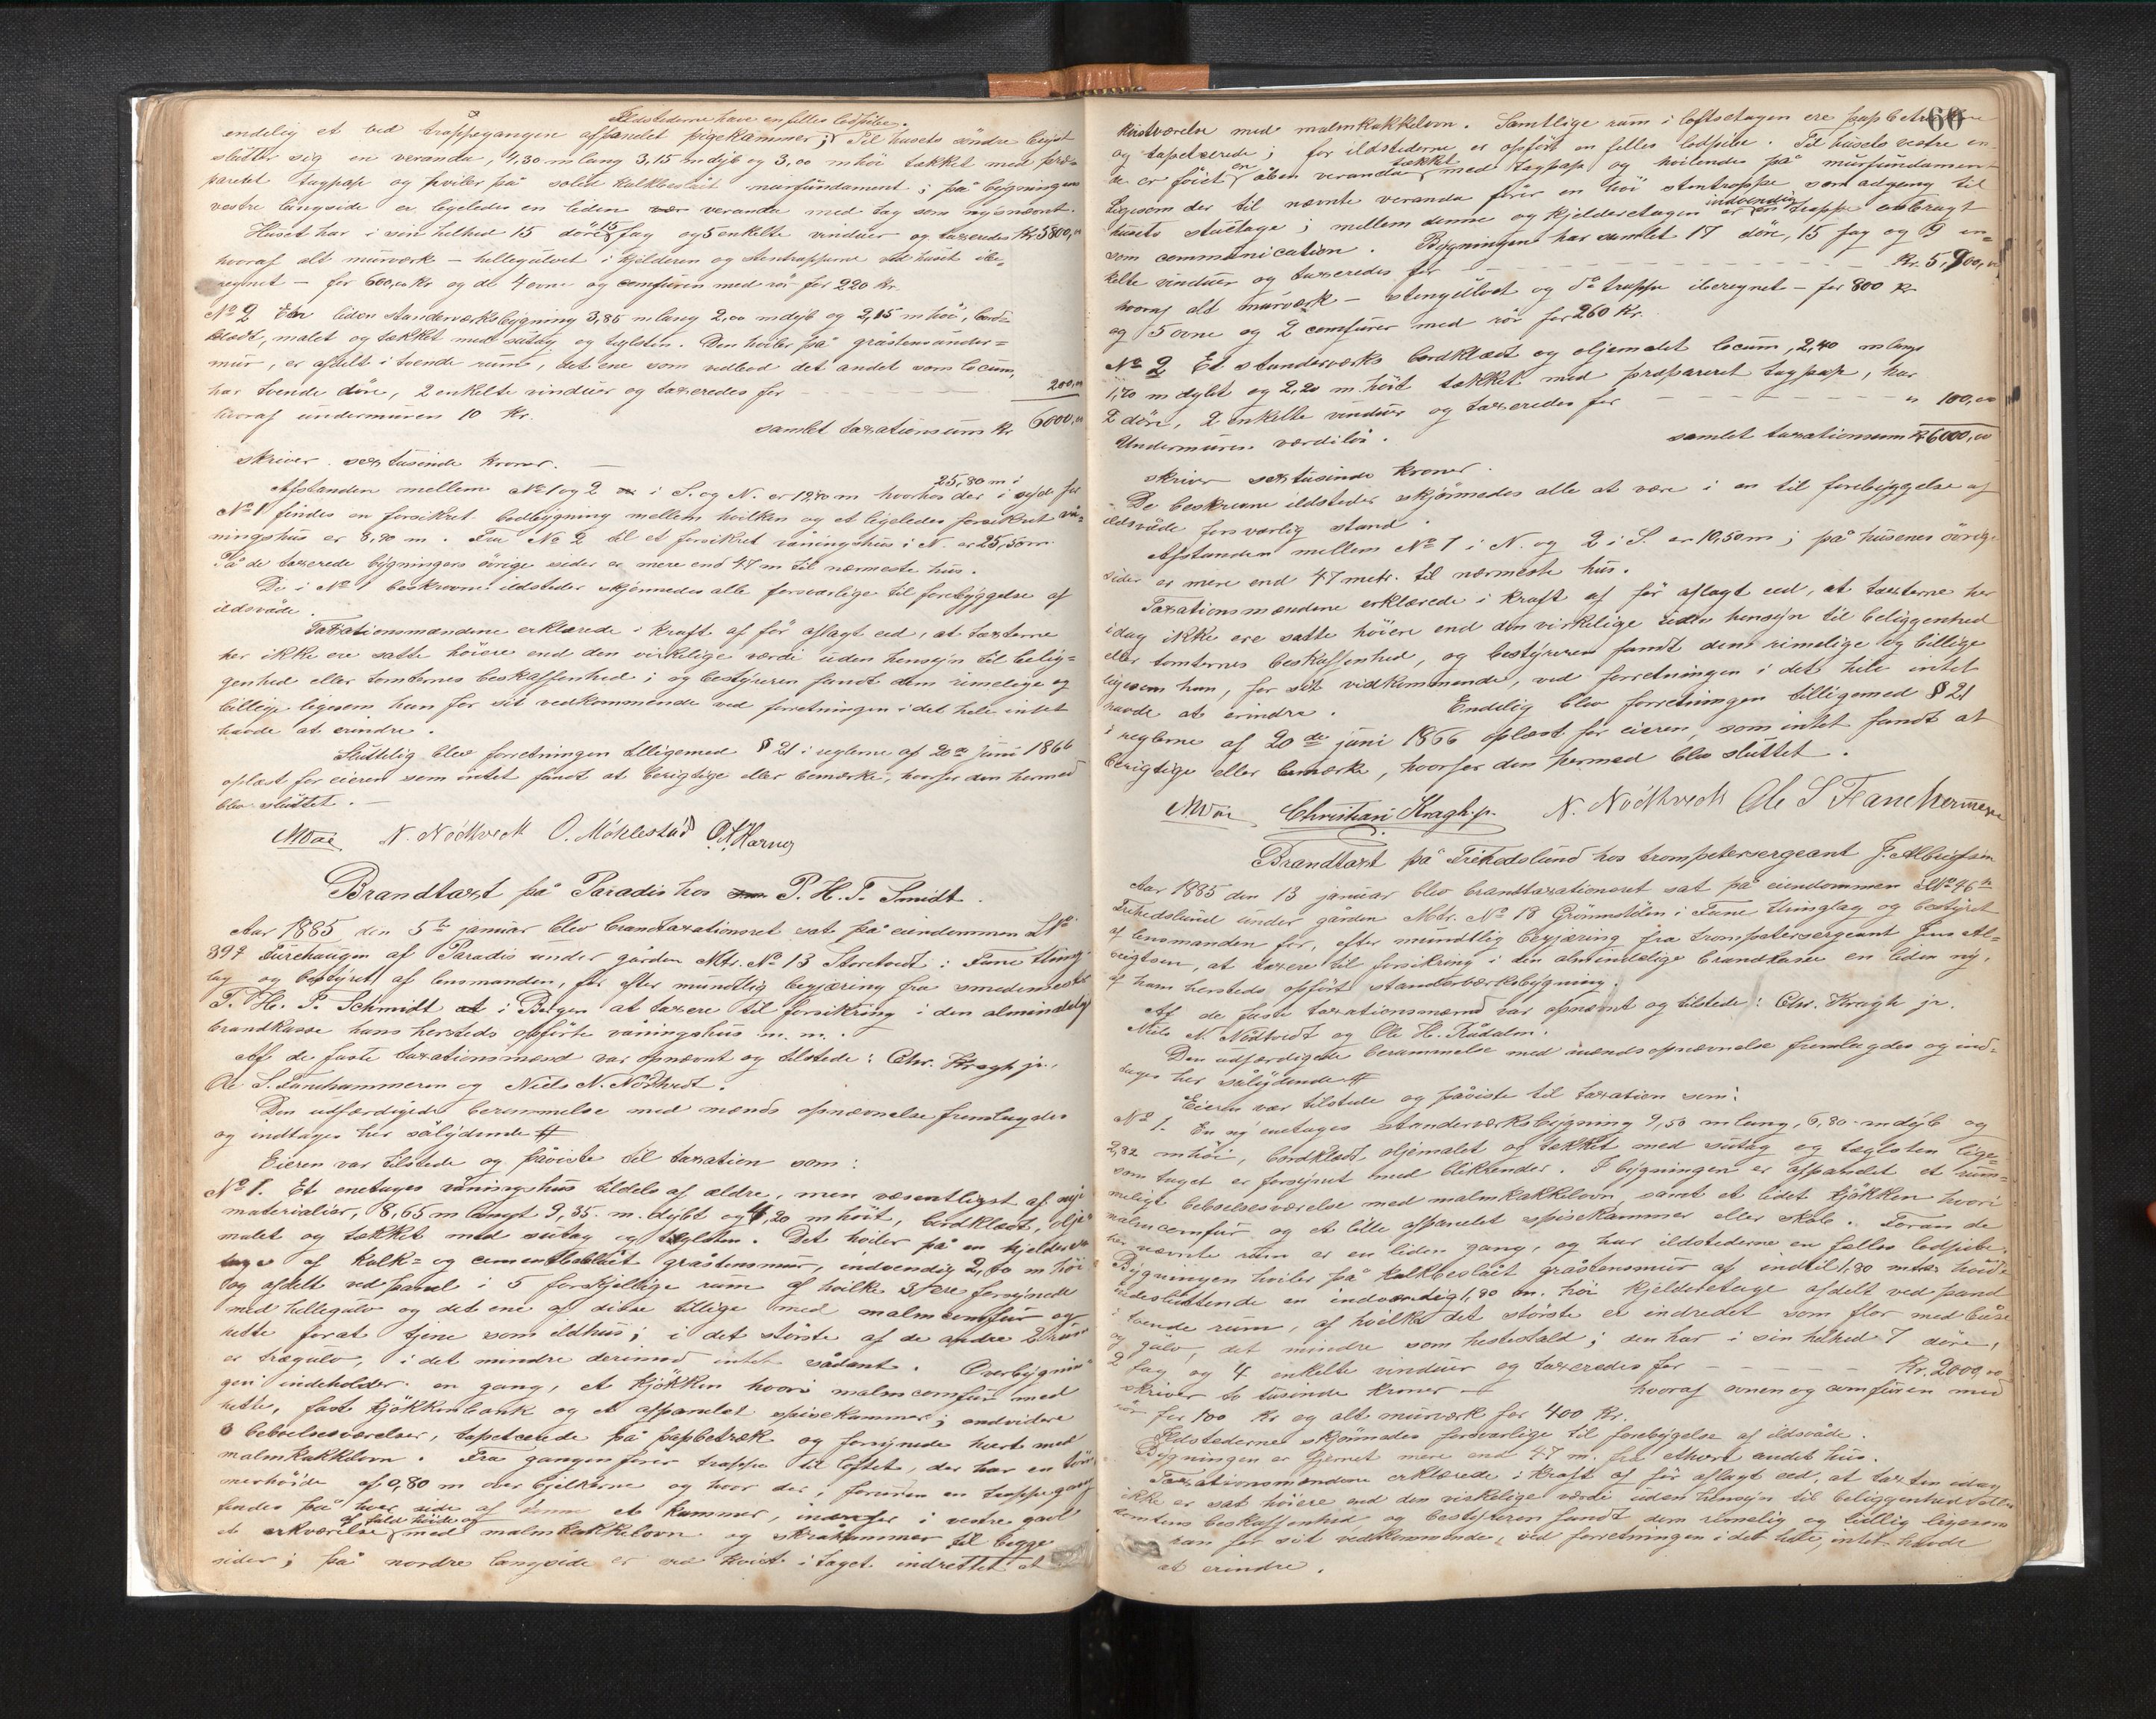 Ildstederne have en fælles lodpibe.
endelig et ved trappegangen afpanelet pigekammer; Til husets söndre langs
slutter sig en veranda, 4,30 m lang 3,15 m dyb og 3,00 m höi takket med præ=
pareret tagpap og hviler på solid kalkbeslåt murfundament; på bygningens
vestre langside er ligeledes en liden veranda med tag som nysnævnt.
Huset har i sin helhed 15 döre, 15 fag og 5 enkelte vinduer og taxeredes Kr. 5800,00
hvoraf alt murværk – hellegulvet i kjelderen og stentrapperne ved huset ibe=
regnet – for 600,00 Kr og de 4 ovne og comfuren med rör for 220 Kr.
No 2 En liden standerværksbygning 3,85 m lang 2,00 m dyb og 2,15 m höi, bord=
klædt, malet og takket med sutag og teglsten. Den hviler på gråstensunder=
mur, er afdelt i tvende rum, det ene som vedbod det andet som locum,
har tvende döre, 2 enkelte vinduer og taxeredes for 200,00
hvoraf undermuren 10 Kr.
samlet taxationsum Kr 6000,00
skriver sex tusinde kroner. –
Afstanden mellem No 1 og 2 i S. og N. er 12,40 m hvorhos der 25,80 m i syd for
No 1 findes en forsikret bodbygning mellem hvilken og et ligeledes forsikret vå=
ningshus er 8,90 m. Fra No 2 til et forsikret våningshus i N. er 25,50 m.
På de taxerede bygningers övrige sider er mere end 47 m til nærmeste hus.
De i No 1 beskrevne ildsteder skjönnedes alle forsvarlige til forebyggelse af
ildsvåde.
Taxationsmændene erklærede i kraft af för aflagt ed, at taxterne
her ikke ere satte höiere end den virkelige værdi uden hensyn til belig=
genhed eller tomternes beskaffenhed; og bestyreren fandt dem rimelige og
billige ligesom han for sit vedkommende ved forretningen i det hele intet
havde at erindre.
Sluttelig blev forretningen tilligemed § 21 i reglerne af 20de juni 1866
oplæst for eieren som intet fandt at berigtige eller bemærke, hvorfor den hermed
blev sluttet. –
N. Nödtvedt O. Möhlestad
Brandtaxt på Paradis hos P. H. T. Smidt.
Aar 1885 den 5te januar blev brandtaxationsret sat på eiendommen L No
39 Furehaugen af Paradis under gården Mtr. No 13 Storetvedt i Fane thing=
lag og bestyret af lensmanden, for efter mundtlig begjæring fra smedemester
P. H. T. Schmidt i Bergen at taxere til forsikring i den almindelige
brandkasse hans hersteds opförte våningshus m. m.
Af de faste taxationsmænd var opnævnt og tilstede: Chr. Kragh jr.,
Ole S. Fanehammeren og Niels N. Nödtvedt.
Den udfærdigede berammelse med mænds opnævnelse fremlagdes
og indtages her sålydende #
Eieren var tilstede og påviste til taxation som:
No 1. Et enetages våningshus tildels af ældre, men væsentligst af nye
materialier, 8,65 m langt 9,35 m. dybt og 4,20 m höit, bordklædt, olje=
malet og takket med sutag og teglsten. Det hviler på en kjelder=
etage af kalk= og cementbeslåt gråstensmur, indvendig 2,10 m höi
og afdelt ved panel i 5 forskjellige rum af hvilke 3 ere forsynede
med hellegulv og det ene af disse tillige med malmcomfur og
rette forat tjene som ildhus; i det störste af de andre 2 rum
er trægulv, i det mindre derimod intet sådant. Overbygnin=
gen indeholder en gang, et kjökken hvori malmcomfur med
rette, fast kjökkenbænk og et afpanelet spisekammer; endvidere
3 beboelsesværelser, tapetserede på papbetræk og forsynede hvert med
malmkakkelovn. Fra gangen förer trappe til loftet, der har en töm=
merhöide af 0,80 m over bjelkerne og hvor der, foruden en trappegang
findes på hver side af denne et kammer, indenfor i vestre gavl
et arkværelse af fuld höide og med malmkakkelovn og skråkammer til begge
sider; på nordre langside er ved kvist i taget indrettet et
60
kvistværelse med malmkakkelovn. Samtlige rum i loftsetagen ere papbetrukne
og tapetserede; for ildstederne er opfört en fælles lodpibe. Til husets vestre en=
de er föiet en åben veranda takket med tagpap og hvilende på murfundament
ligesom der til nævnte veranda förer en höi stentrappe som adgang til
husets stuetage; mellem denne og kjelderetagen er en indvendig trappe anbragt
som communication. Bygningen har samlet 17 döre, 15 fag og 9 en=
kelte vinduer og taxeredes for Kr. 5,900,00
hvoraf alt murværk – stengulvet og do trappe iberegnet – for 800 Kr
og 5 ovne og 2 comfurer med rör for 260 Kr.
No 2 Et standerværks bordklædt og oljemalet locum, 2,40 m langt
1,70 m dybt og 2,20 m. höit takket med præpareret tagpap, har
2 döre, 2 enkelte vinduer og taxeredes for " 100,00
Undermuren værdilös.
samlet taxationsum Kr 6000,00
skriver sextusinde kroner.
De beskrevne ildsteder skjönnedes alle at være i en til forebyggelse af
ildsvåde forsvarlig stand.
Afstanden mellem No 1 i N. og 2 i S. er 10,50 m; på husenes övrige
sider er mere end 47 metr. til nærmeste hus.
Taxationsmændene erklærede i kraft af för aflagt ed, at taxterne her
idag ikke ere satte höiere end den virkelige uden hensyn til beliggenhed
eller tomternes beskaffenhed, og bestyreren fandt dem rimelige og billige
ligesom han, for sit vidkommende, ved forretningen i det hele intet
havde at erindre. Endelig blev forretningen tilligemed § 21
i reglerne af 20de juni 1866 oplæst for eieren, som intet fandt at
berigtige eller bemærke, hvorfor den hermed blev sluttet.
Christian Kragh jr. N. Nödtvedt Ole S Fanehammeren
Brandtaxt på Frihedslund hos trompetersergeant J. Albrigtsen
Aar 1885 den 13 januar blev brandtaxationsret sat på eiendommen L No 46
Frihedslund under gården Mtr. No 18 Grönnestölen i Fane thinglag og bestyret
af lensmanden for, efter mundtlig begjæring fra trompetersergeant Jens Al=
brigtsen, at taxere til forsikring i den almindelige brandkasse en liden ny,
af ham hersteds opfört standerværksbygning.
Af de faste taxationsmænd var opnævnt og tilstede: Chr. Kragh jr.
Niels N. Nödtvedt og Ole H. Rådalen.
Den udfærdigede berammelse med mændsopnævnelse fremlagdes og ind=
tages her sålydende #
Eieren var tilstede og påviste til taxation som:
No 1. En ny enetages standerværksbygning 9,50 m lang, 6,80 m dyb og
2,82 m höi, bordklædt, oljemalet og takket med sutag og teglsten lige=
som taget er forsynet med blikrender. I bygningen er afpanelet et rum=
meligt beboelsesværelse med malmkakkelovn samt et lidet kjökken hvori
malmcomfur og et lille afpanelet spisekammer eller skab. Foran de
her nævnte rum er en liden gang, og har ildstederne en fælles lodpibe.
Bygningen hviler på kalkbeslåt gråstensmur af indtil 1,80 mtrs höide
indesluttende en indvendig 1,90 m. höi kjelderetage afdelt ved panel
i tvende rum, af hvilke det störste er indredet som flor med båse
og gulv, det mindre som hestestald; den har i sin helhed 7 döre,
2 fag og 4 enkelte vinduer og taxeredes for Kr. 2000,00
skriver to tusinde kroner – hvoraf ovnen og comfuren med
rör for 100 Kr og alt murværk for 400 Kr.
Ildstederne skjönnedes forsvarlige til forebygelse af ildsvåde.
Bygningen er fjernet mere end 47 m. fra ethvert andet hus.
Taxationsmændene erklærede i kraft af för aflagt ed, at taxten idag
ikke er sat höiere end den virkelige værdi uden hensyn til beliggenhed eller
tomtens beskaffenhed og bestyreren fandt dem rimelig og billig ligesom
han for sit vedkommende, ved forretningen i det hele, intet havde
at erindre.